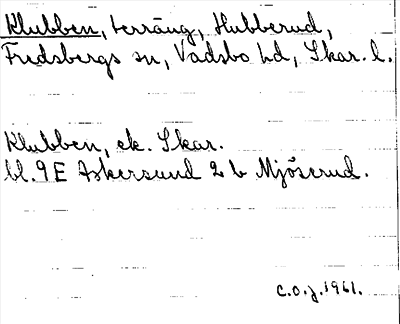 Klubben, terräng, Hubberud,
Fredsbergs sn, Vadsbo hd, Skar. l.
Klubben, ek. Skar.
bl. 9E Askersund 2 b Mjöserud.
C.O.J. 1961.